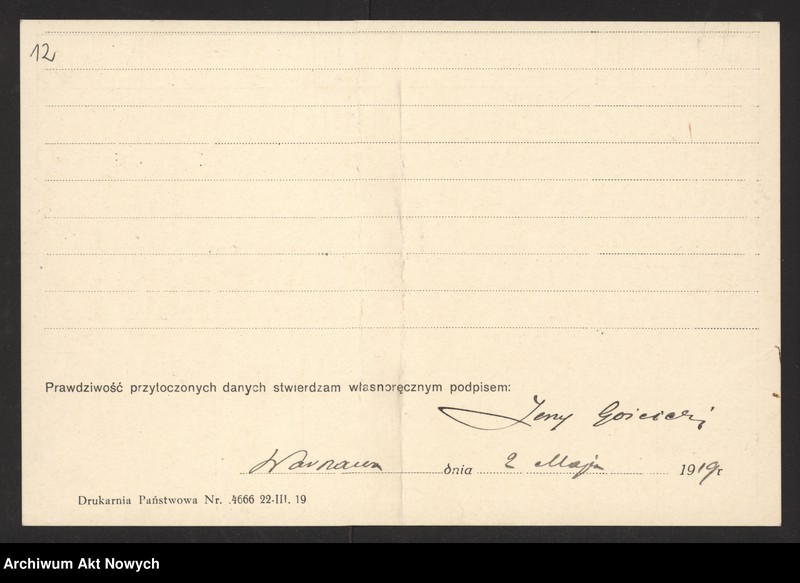 12
Prawdziwość przytoczonych danych stwierdzam własnoręcznym podpisem:
Jerzy Gościcki
Warszawa dnia 2 Maja 1919 r
Drukarnia Państwowa Nr. 4666 22-III. 19
Archiwum Akt Nowych